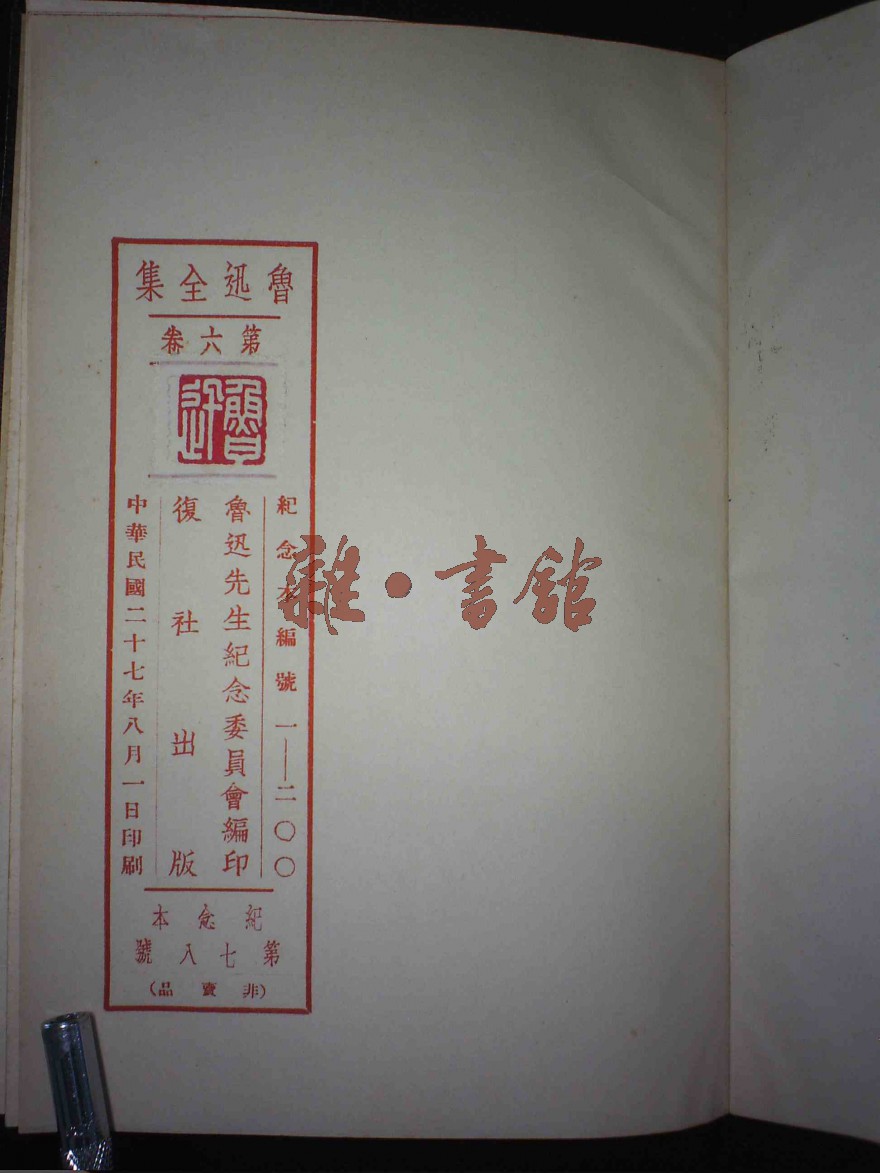 魯迅全集
第六卷
魯迅
紀念本編號 一——二〇〇
魯迅先生紀念委員會編印
復社出版
中華民國二十七年八月一日印刷
紀念本
第七八號
(非賣品)
雜·書館